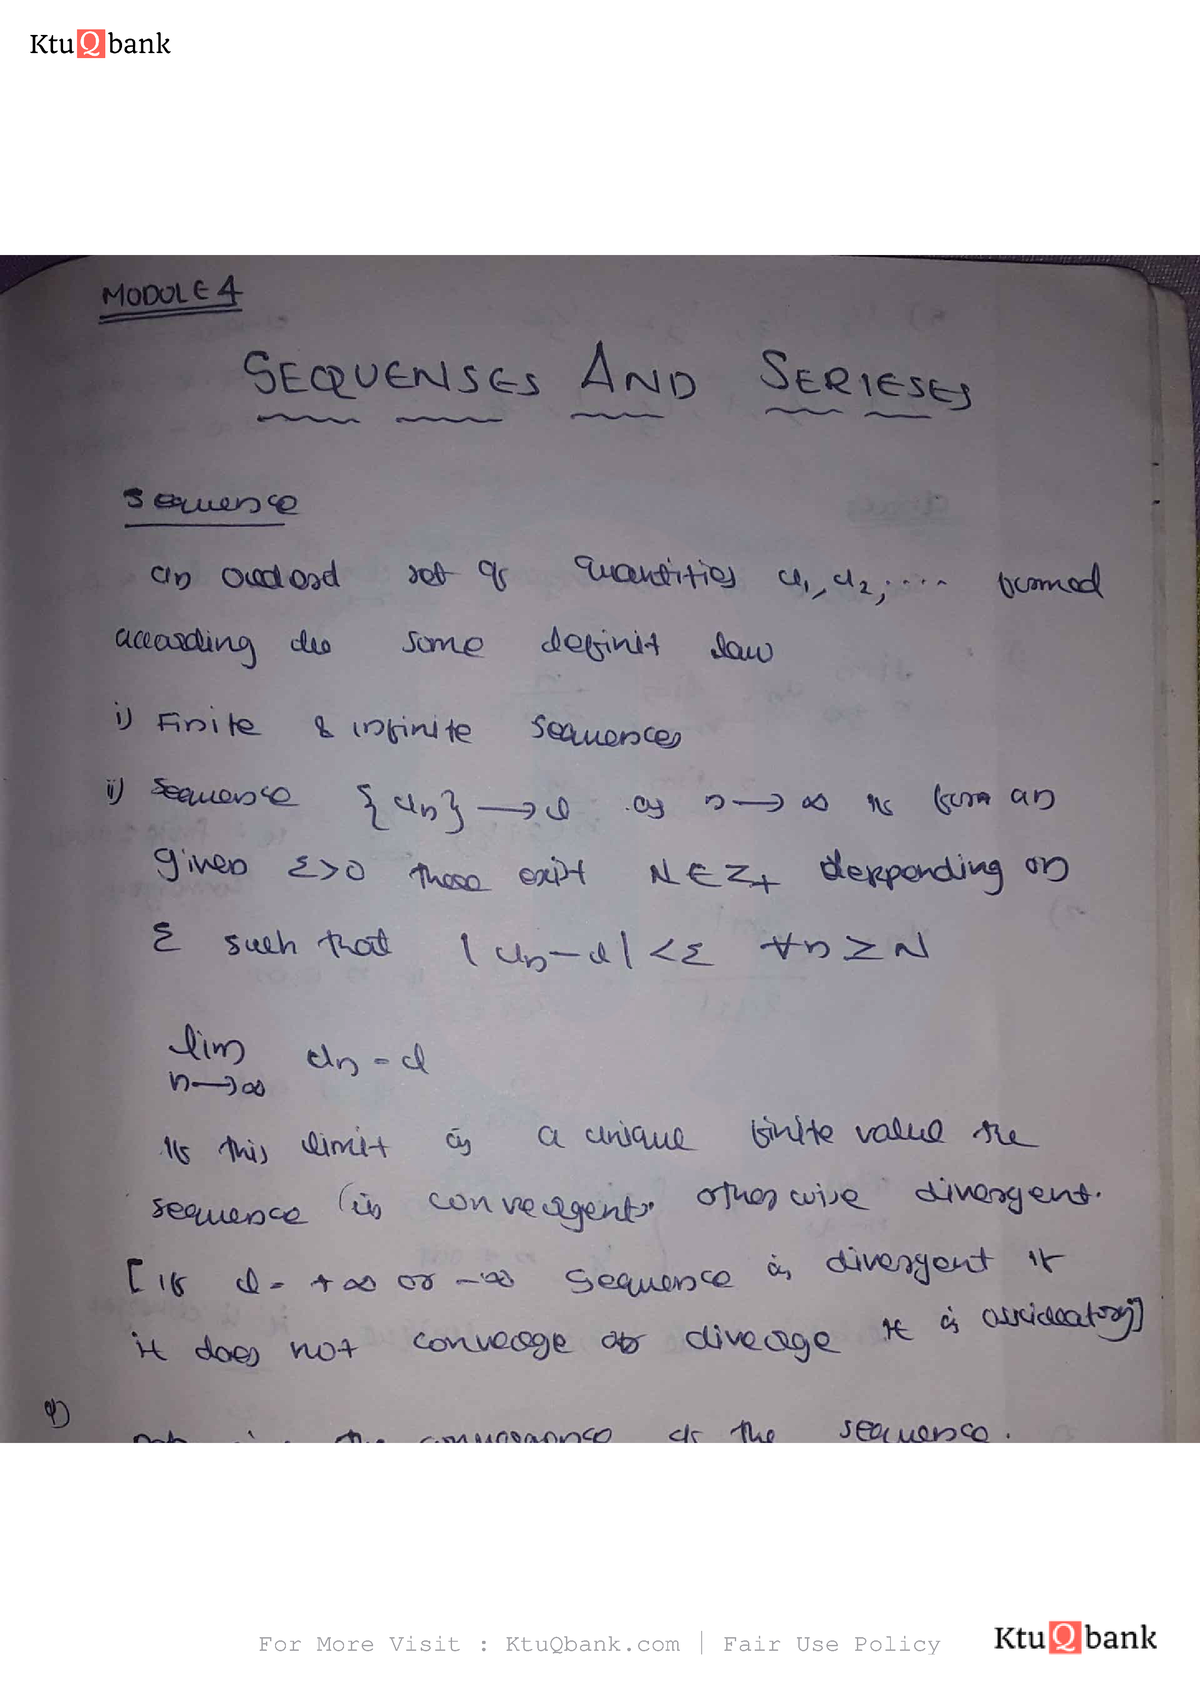 KtuQbank
MODULE 4
SEQUENSES AND SERIESES
Sequence
an ordered set of quantities u₁, u₂, .... formed
according to some definit law
i) Finite & infinite sequences
ii) Sequence {un} → l as n → ∞ if for an
given ε>0 there exist N ∈ Z+ depponding on
ε such that |un-l| <ε ∀n ≥ N
lim un = l
n→∞
If this limit is a unique finite value the
sequence is convergent, otherwise divergent.
[if l = +∞ or -∞ sequence is divergent if
it does not converge or diverge it is oscillatory]
1)
the convergence of the sequence.
For More Visit : KtuQbank.com | Fair Use Policy
KtuQbank